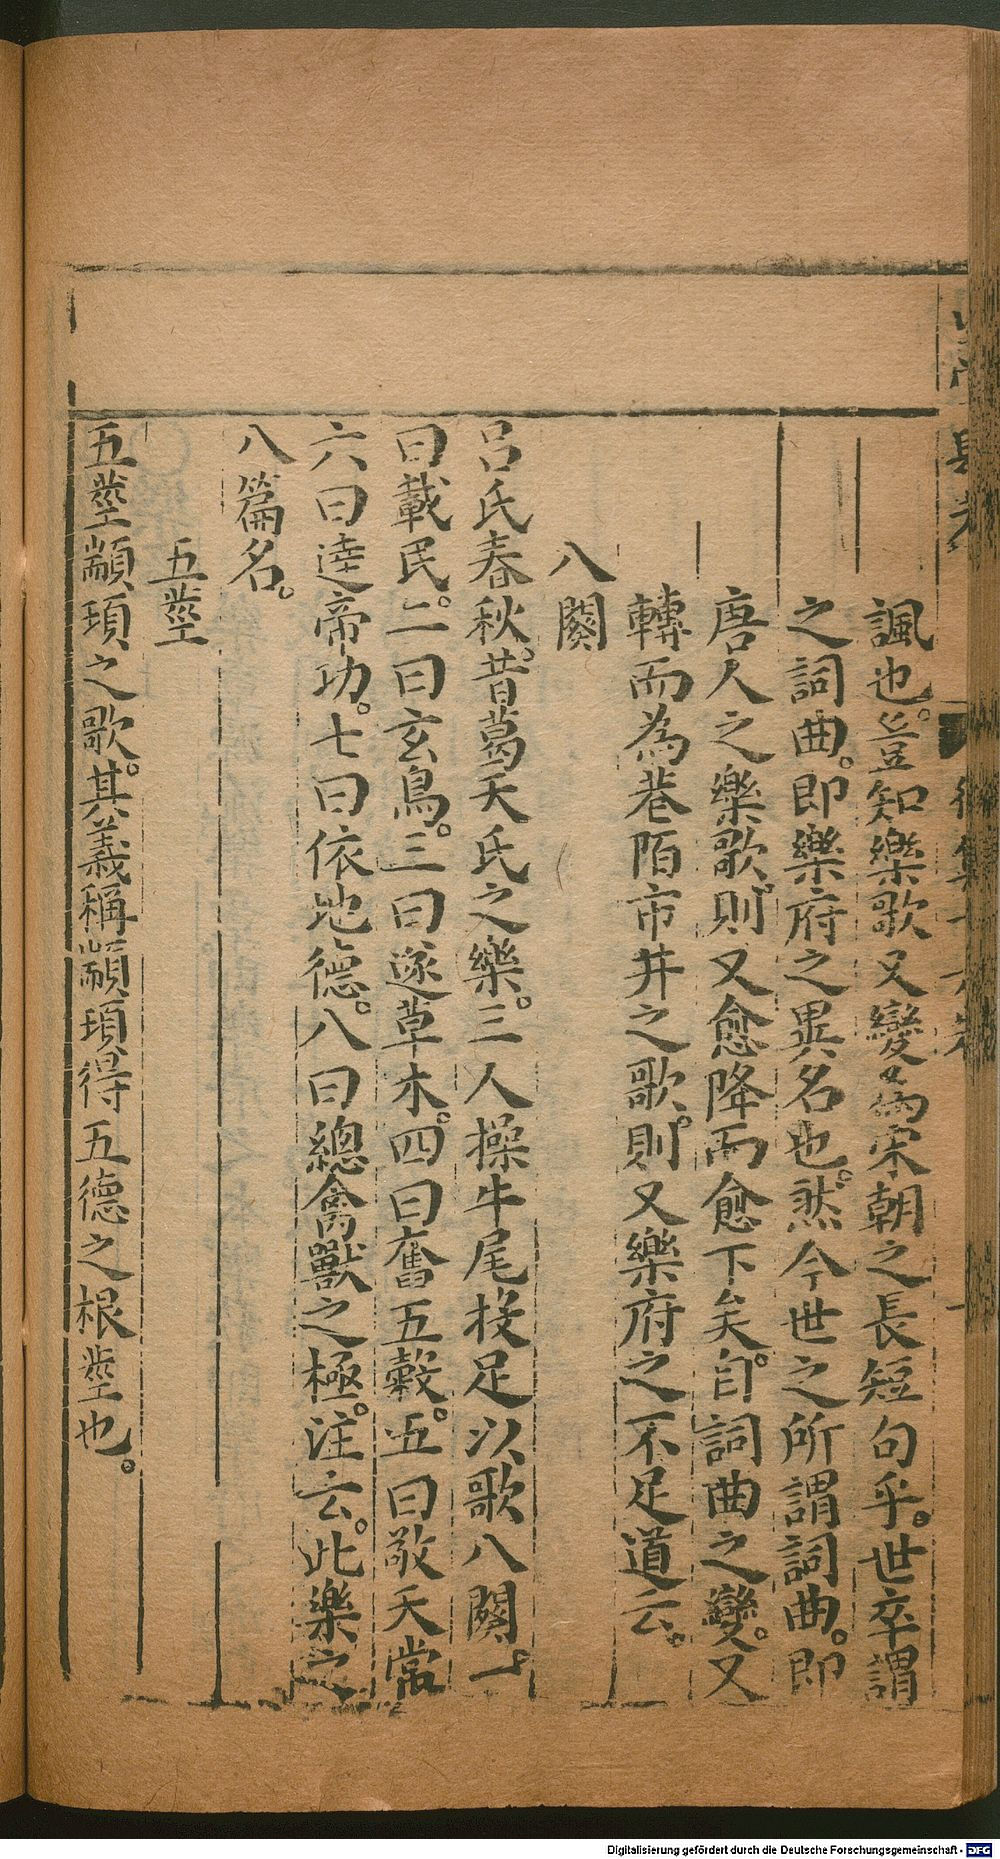 諷也。豈知樂歌又變為宋朝之長短句乎。世卒謂
之詞曲。即樂府之異名也。然今世之所謂詞曲。即
唐人之樂歌。則又愈降而愈下矣。自詞曲之變。又
轉而為巷陌市井之歌。則又樂府之不足道云。
八闋
呂氏春秋。昔葛天氏之樂。三人操牛尾投足以歌八闋。一
曰載民。二曰玄鳥。三曰遂草木。四曰奮五穀。五曰敬天常
六曰達帝功。七曰依地德。八曰總禽獸之極。注云。此樂之
八篇名。
五莖
五莖顓頊之歌。其義稱顓頊得五德之根莖也。
Digitalisierung gefördert durch die Deutsche Forschungsgemeinschaft - DFG